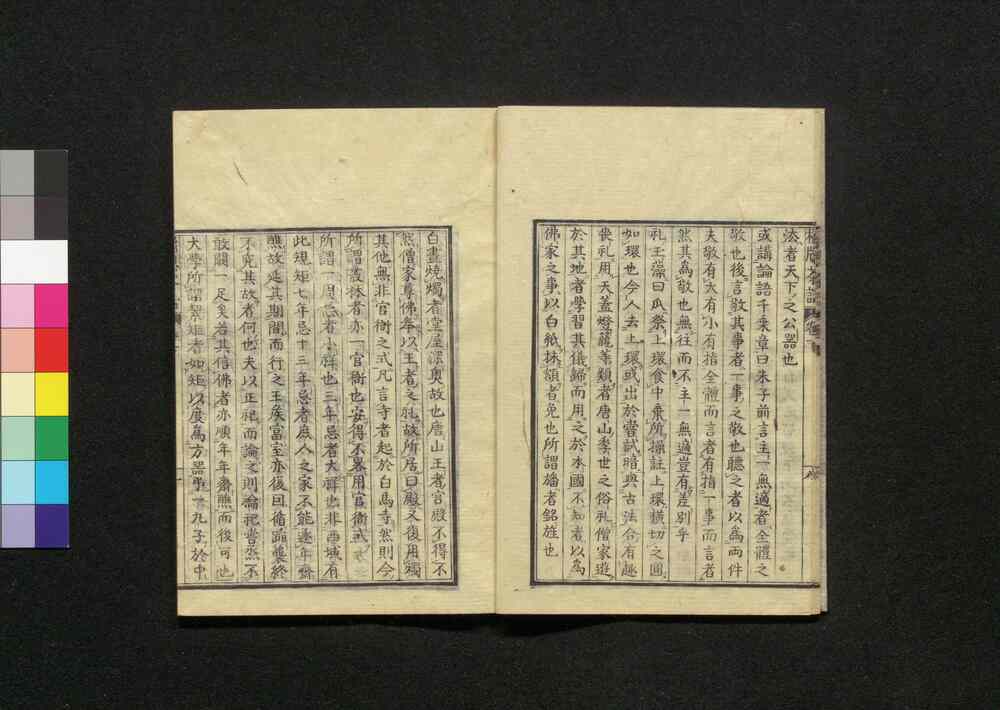 法者天下之公器也
或講論語千乘章曰朱子前言主一無適者全體之
敬也後言敬其事者一事之敬也聽之者以爲兩件
夫敬有大有小有指全體而言者有指一事而言者
然其爲敬也無往而不主一無適豈有差別乎
礼玉藻曰瓜祭上環食中棄所操註上環橫切之圓
如環也今人去上環或出於嘗試暗與古法合有趣
喪礼用天蓋燈籠等類者唐山季世之俗礼僧家遊
於其地者學習其儀歸而用之於本國不知者以爲
佛家之事以白紙抹額者免也所謂旛者銘旌也
白晝燒燭者堂屋深奥故也唐山王者宮殿不得不
然僧家尊佛奉以王者之礼故所居曰殿又復用燭
其他無非官衙之式凡言寺者起於白馬寺然則今
所謂叢林者亦一官衙也安得不畧用官衙式
所謂一周忌者小祥也三年忌者大祥也非西域有
此規矩七年忌十三年忌者庶人之家不能逐年齋
醮故延其期間而行之王侯富室亦復因循踵襲終
不究其故者何也夫以正祀而論之則禴祀嘗烝不
敢闕一足矣若其信佛者亦須年年齋醮而後可也
大學所謂絜矩者如矩以度爲方器 九子於中